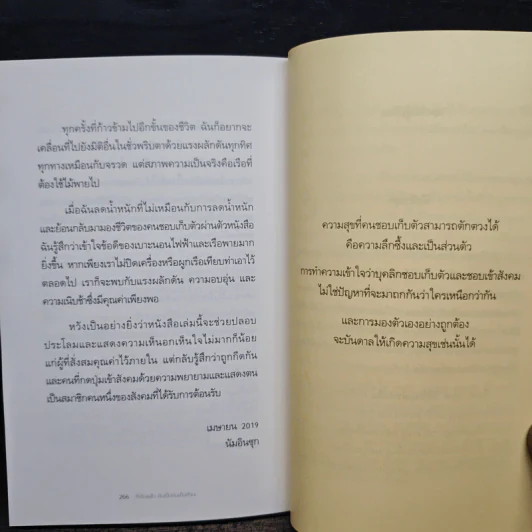 ทุกครั้งที่ก้าวข้ามไปอีกขั้นของชีวิต ฉันก็อยากจะ
เคลื่อนที่ไปยังมิติอื่นในชั่วพริบตาด้วยแรงผลักดันทุกทิศ
ทุกทางเหมือนกับจรวด แต่สภาพความเป็นจริงคือเรือที่
ต้องใช้ไม้พายไป
เมื่อฉันลดน้ำหนักที่ไม่เหมือนกับการลดน้ำหนัก
และย้อนกลับมามองชีวิตของคนชอบเก็บตัวผ่านตัวหนังสือ
ฉันรู้สึกว่าเข้าใจข้อดีของเบาะนอนไฟฟ้าและเรือพายมาก
ยิ่งขึ้น หากเพียงเราไม่ปิดเครื่องหรือผูกเรือเทียบท่าเอาไว้
ตลอดไป เราก็จะพบกับแรงผลักดัน ความอบอุ่น และ
ความเนิบช้าซึ่งมีคุณค่าเพียงพอ
หวังเป็นอย่างยิ่งว่าหนังสือเล่มนี้จะช่วยปลอบ
ประโลมและแสดงความเห็นอกเห็นใจไม่มากก็น้อย
แก่ผู้ที่สั่งสมคุณค่าไว้ภายใน แต่กลับรู้สึกว่าถูกกีดกัน
และคนที่กดปุ่มเข้าสังคมด้วยความพยายามและแสดงตน
เป็นสมาชิกคนหนึ่งของสังคมที่ได้รับการต้อนรับ
เมษายน 2019
นัมอินซุก
266
ความสุขที่คนชอบเก็บตัวสามารถตักตวงได้
คือความลึกซึ้งและเป็นส่วนตัว
การทำความเข้าใจว่าบุคลิกชอบเก็บตัวและชอบเข้าสังคม
ไม่ใช่ปัญหาที่จะมาถกกันว่าใครเหนือกว่ากัน
และการมองตัวเองอย่างถูกต้อง
จะบันดาลให้เกิดความสุขเช่นนั้นได้